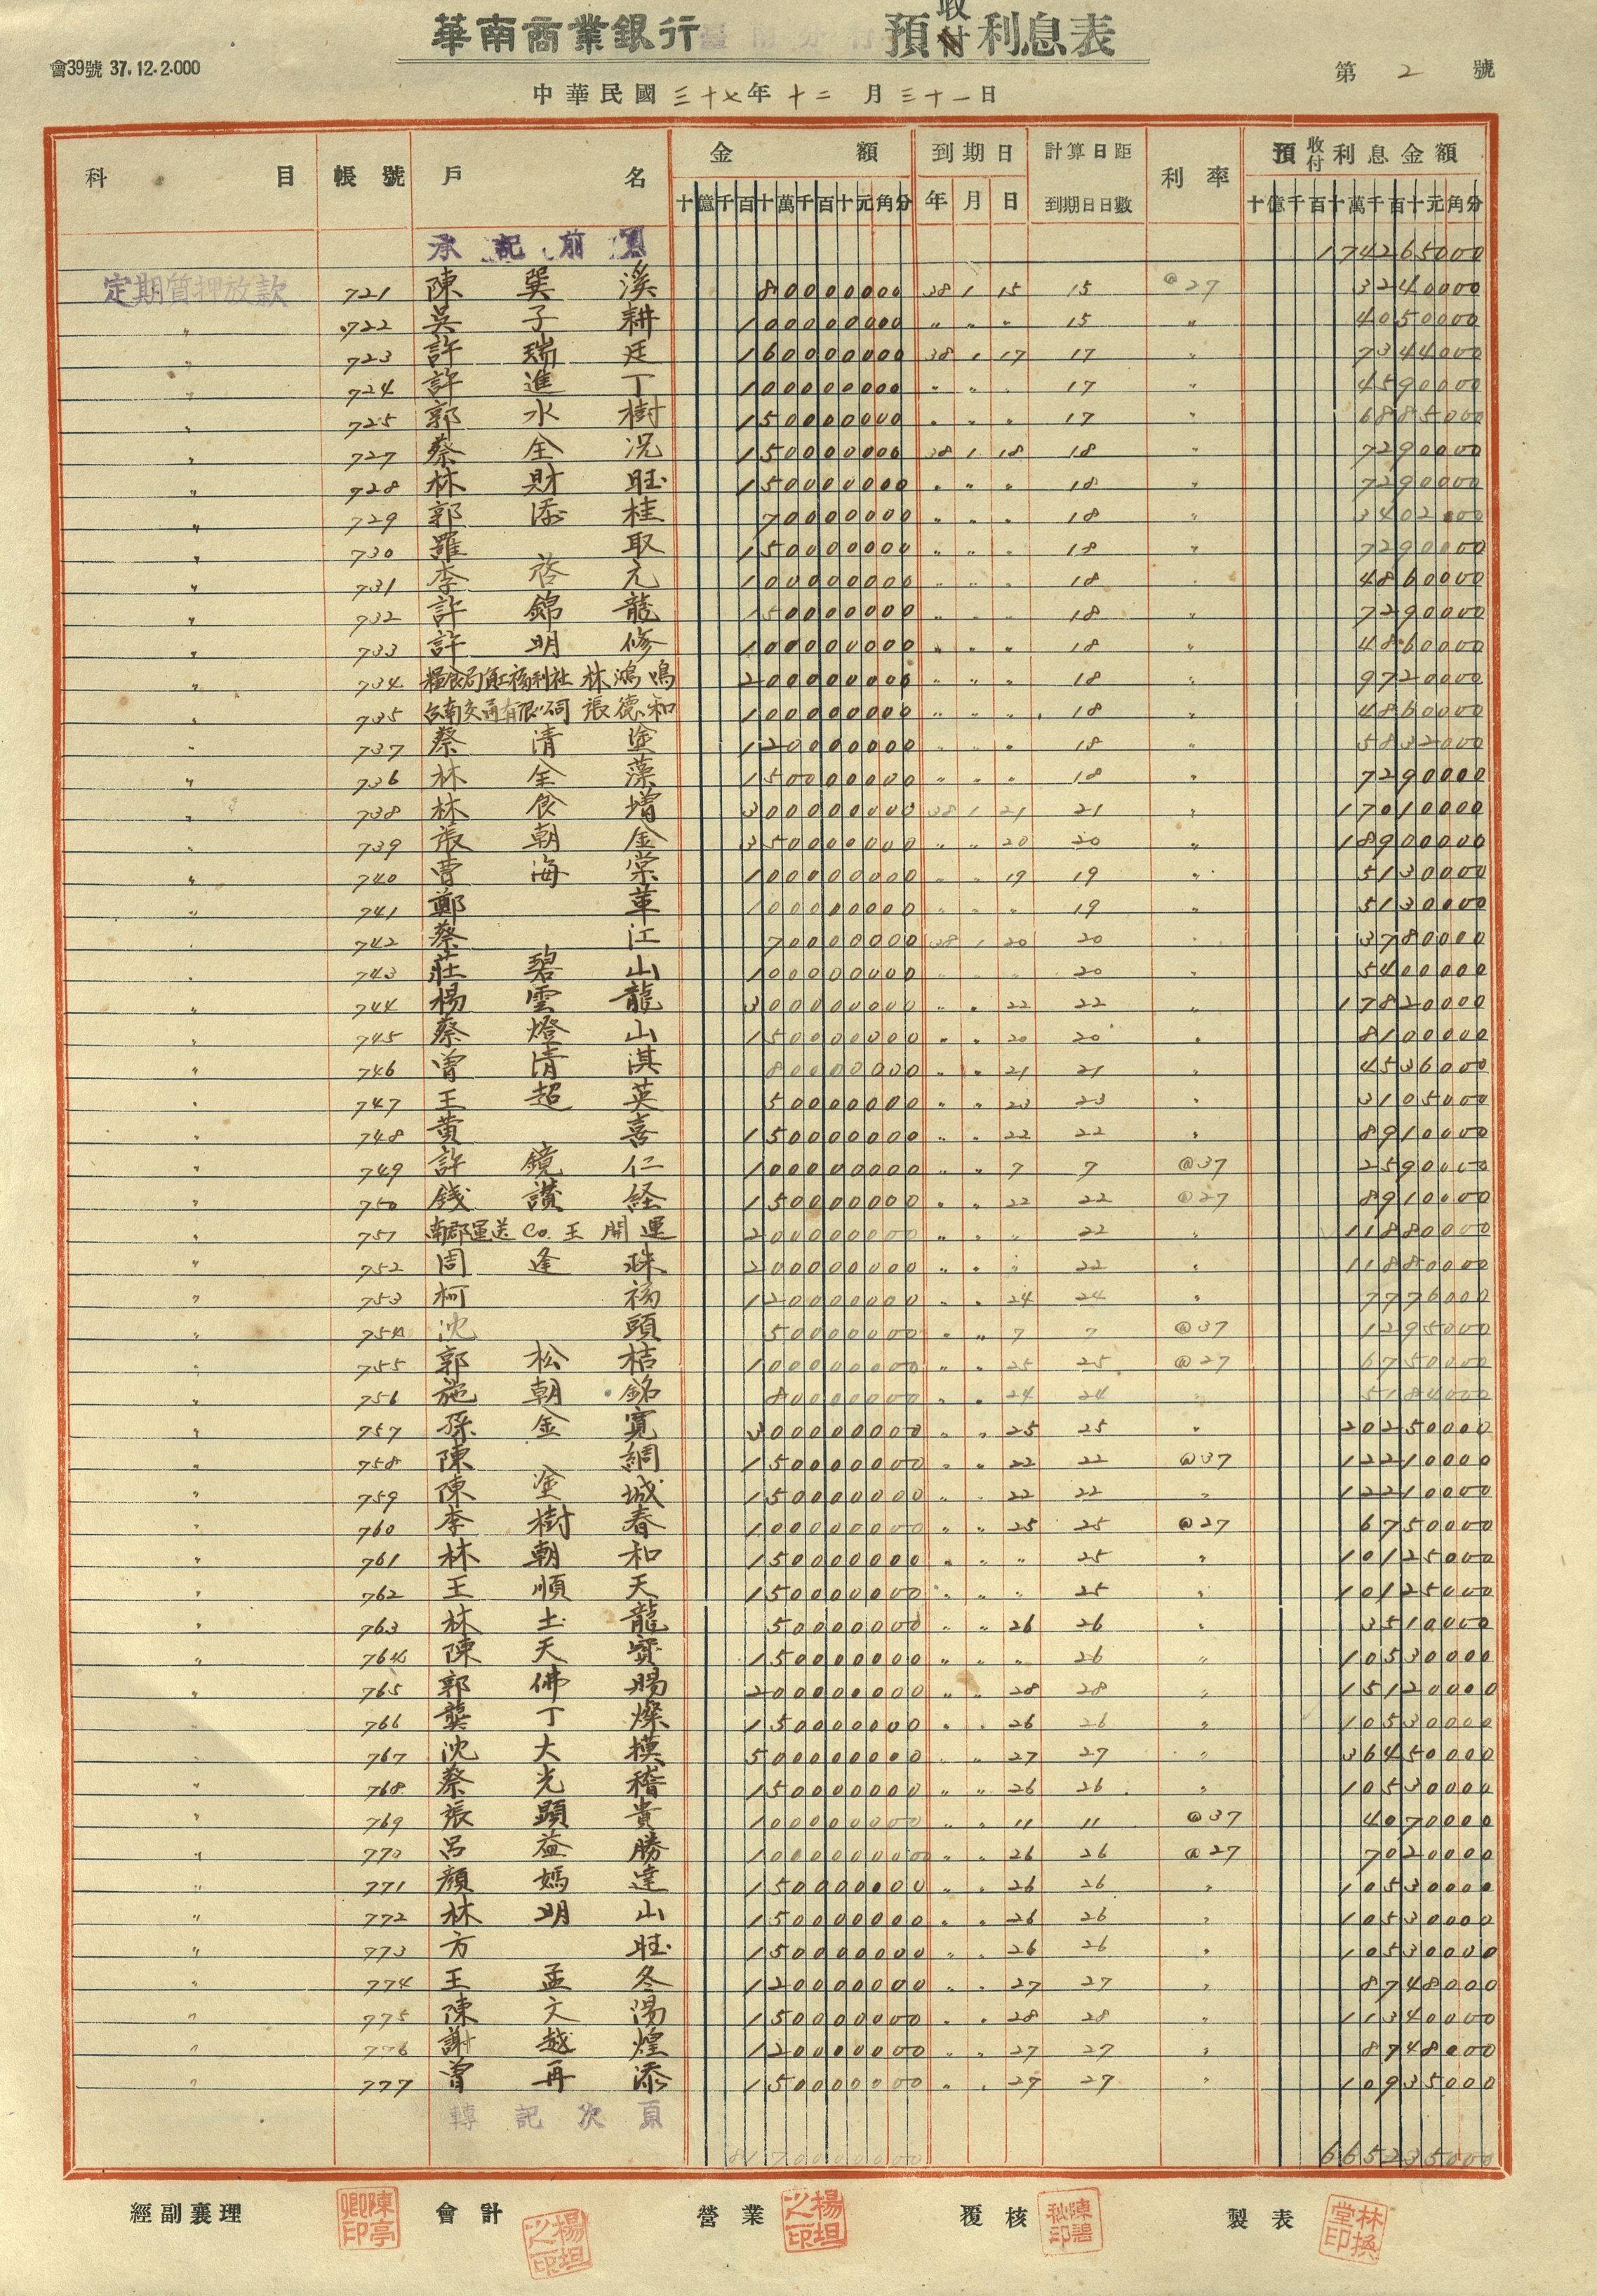 華南商業銀行 臺南分行 預收付利息表
會39號 37.12.2.000
第 2 號
中華民國三十七年十二月三十一日
科目 帳號 戶名 金額 到期日 計算日距到期日日數 利率 預收付利息金額
十億千百十萬千百十元角分 年 月 日 十億千百十萬千百十元角分
承記前頁 174265000
定期質押放款 721 陳巽溪 80000000 38 1 15 15 @27 3240000
〃 722 吳子耕 100000000 〃 〃 〃 15 〃 4050000
〃 723 許瑞廷 160000000 38 1 17 17 〃 7344000
〃 724 許進丁 100000000 〃 〃 〃 17 〃 4590000
〃 725 郭水樹 150000000 〃 〃 〃 17 〃 6885000
〃 727 蔡全况 150000000 38 1 18 18 〃 7290000
〃 728 林財旺 150000000 〃 〃 〃 18 〃 7290000
〃 729 郭添桂 70000000 〃 〃 〃 18 〃 3402000
〃 730 羅取 150000000 〃 〃 〃 18 〃 7290000
〃 731 李啓元 100000000 〃 〃 〃 18 〃 4860000
〃 732 許錦龍 150000000 〃 〃 〃 18 〃 7290000
〃 733 許明修 100000000 〃 〃 〃 18 〃 4860000
〃 734 糧食局員工福利社 林鴻鳴 200000000 〃 〃 〃 18 〃 9720000
〃 735 台南交通有限公司 張德和 100000000 〃 〃 〃 18 〃 4860000
〃 737 蔡清塗 120000000 〃 〃 〃 18 〃 5832000
〃 736 林全藻 150000000 〃 〃 〃 18 〃 7290000
〃 738 林食增 300000000 38 1 21 21 〃 17010000
〃 739 張朝金 350000000 〃 〃 20 20 〃 18900000
〃 740 曹海棠 100000000 〃 〃 19 19 〃 5130000
〃 741 鄭革 100000000 〃 〃 〃 19 〃 5130000
〃 742 蔡江 70000000 38 1 20 20 〃 3780000
〃 743 莊碧山 100000000 〃 〃 〃 20 〃 5400000
〃 744 楊雲龍 300000000 〃 〃 22 22 〃 17820000
〃 745 蔡燈山 150000000 〃 〃 20 20 〃 8100000
〃 746 曾清淇 80000000 〃 〃 21 21 〃 4536000
〃 747 王超英 50000000 〃 〃 23 23 〃 3105000
〃 748 黄喜 150000000 〃 〃 22 22 〃 8910000
〃 749 許鏡仁 100000000 〃 〃 7 7 @37 2590000
〃 750 錢讚経 150000000 〃 〃 22 22 @27 8910000
〃 751 南郡運送Co. 王開運 200000000 〃 〃 〃 22 〃 11880000
〃 752 周逢珠 200000000 〃 〃 〃 22 〃 11880000
〃 753 柯福 120000000 〃 〃 24 24 〃 7776000
〃 754 沈頭 50000000 〃 〃 7 7 @37 1295000
〃 755 郭松桔 100000000 〃 〃 25 25 @27 6750000
〃 756 施朝銘 80000000 〃 〃 24 24 〃 5184000
〃 757 孫金寬 300000000 〃 〃 25 25 〃 20250000
〃 758 陳綢 150000000 〃 〃 22 22 @37 12210000
〃 759 陳塗城 150000000 〃 〃 22 22 〃 12210000
〃 760 李樹春 100000000 〃 〃 25 25 @27 6750000
〃 761 林朝和 150000000 〃 〃 〃 25 〃 10125000
〃 762 王順天 150000000 〃 〃 〃 25 〃 10125000
〃 763 林土龍 50000000 〃 〃 26 26 〃 3510000
〃 764 陳天寶 150000000 〃 〃 〃 26 〃 10530000
〃 765 郭佛賜 200000000 〃 〃 28 28 〃 15120000
〃 766 龔丁燦 150000000 〃 〃 26 26 〃 10530000
〃 767 沈大模 500000000 〃 〃 27 27 〃 36450000
〃 768 蔡光稽 150000000 〃 〃 26 26 〃 10530000
〃 769 張顕貴 100000000 〃 〃 11 11 @37 4070000
〃 770 呂益勝 100000000 〃 〃 26 26 @27 7020000
〃 771 顏媽達 150000000 〃 〃 26 26 〃 10530000
〃 772 林明山 150000000 〃 〃 26 26 〃 10530000
〃 773 方旺 150000000 〃 〃 26 26 〃 10530000
〃 774 王孟冬 120000000 〃 〃 27 27 〃 8748000
〃 775 陳文湯 150000000 〃 〃 28 28 〃 11340000
〃 776 謝越煌 120000000 〃 〃 27 27 〃 8748000
〃 777 曾再添 150000000 〃 〃 27 27 〃 10935000
轉記次頁
665235000
經副襄理 陳亭卿印 會計 楊坦之印 營業 楊坦之印 覆核 製表 林換堂印